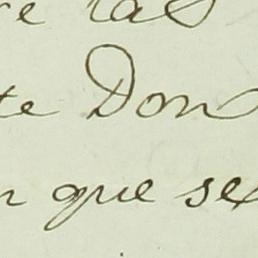 re las
te Don
n que se